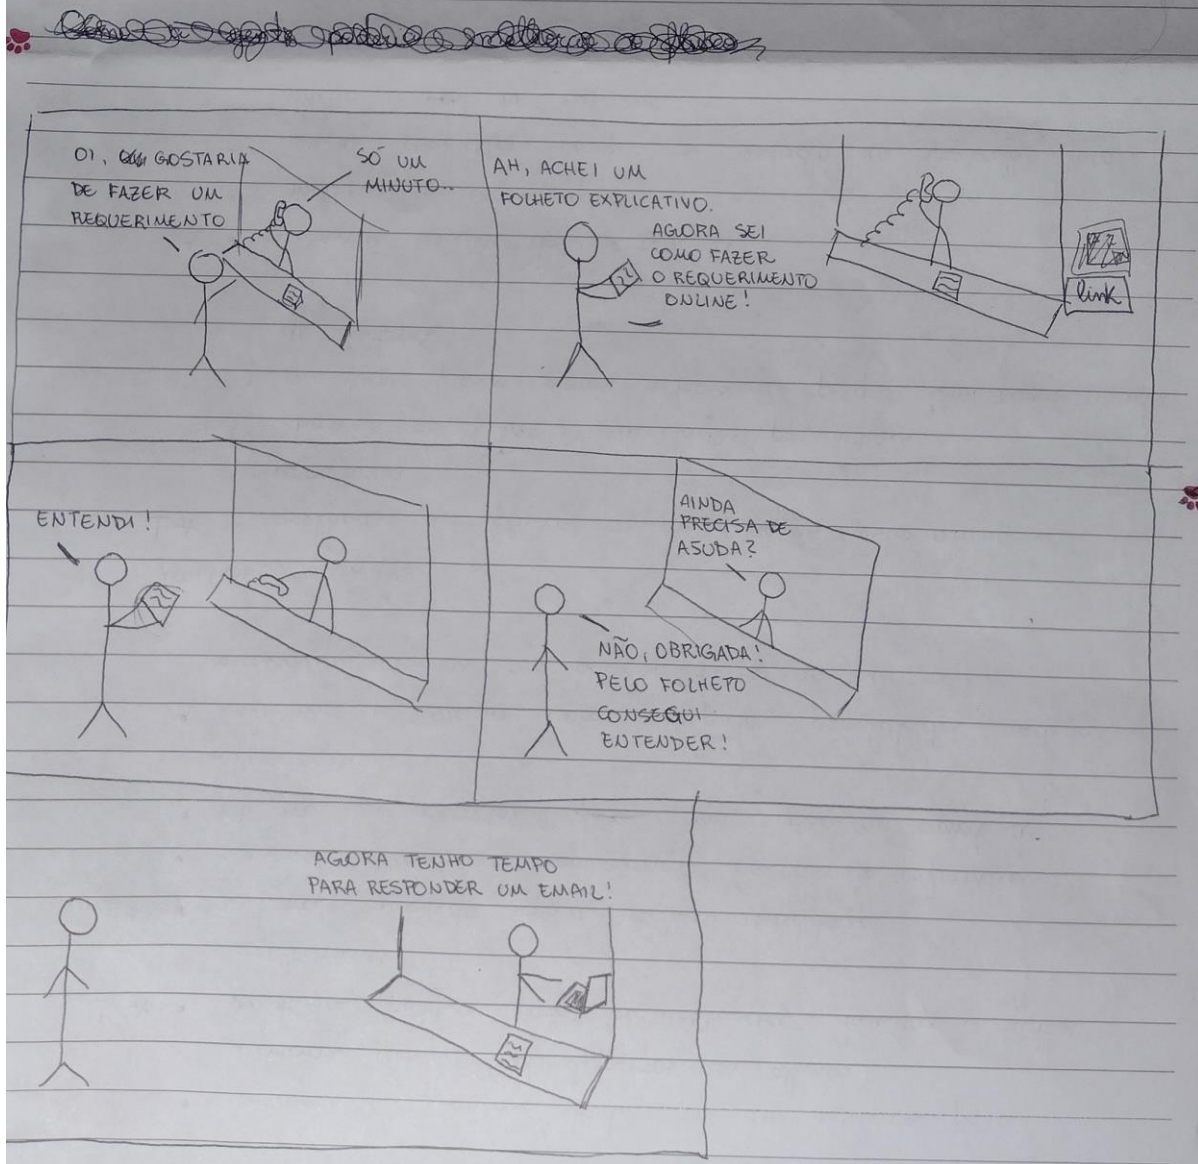 OI, GOSTARIA
DE FAZER UM
REQUERIMENTO
SÓ UM
MINUTO...
AH, ACHEI UM
FOLHETO EXPLICATIVO.
AGORA SEI
COMO FAZER
O REQUERIMENTO
ONLINE!
link
ENTENDI!
AINDA
PRECISA DE
AJUDA?
NÃO, OBRIGADA!
PELO FOLHETO
CONSEGUI
ENTENDER!
AGORA TENHO TEMPO
PARA RESPONDER UM EMAIL!